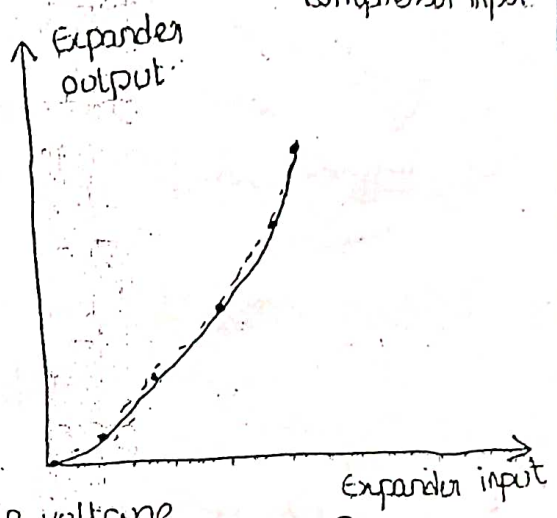 compressor input
Expander
output
Expander input
voltage